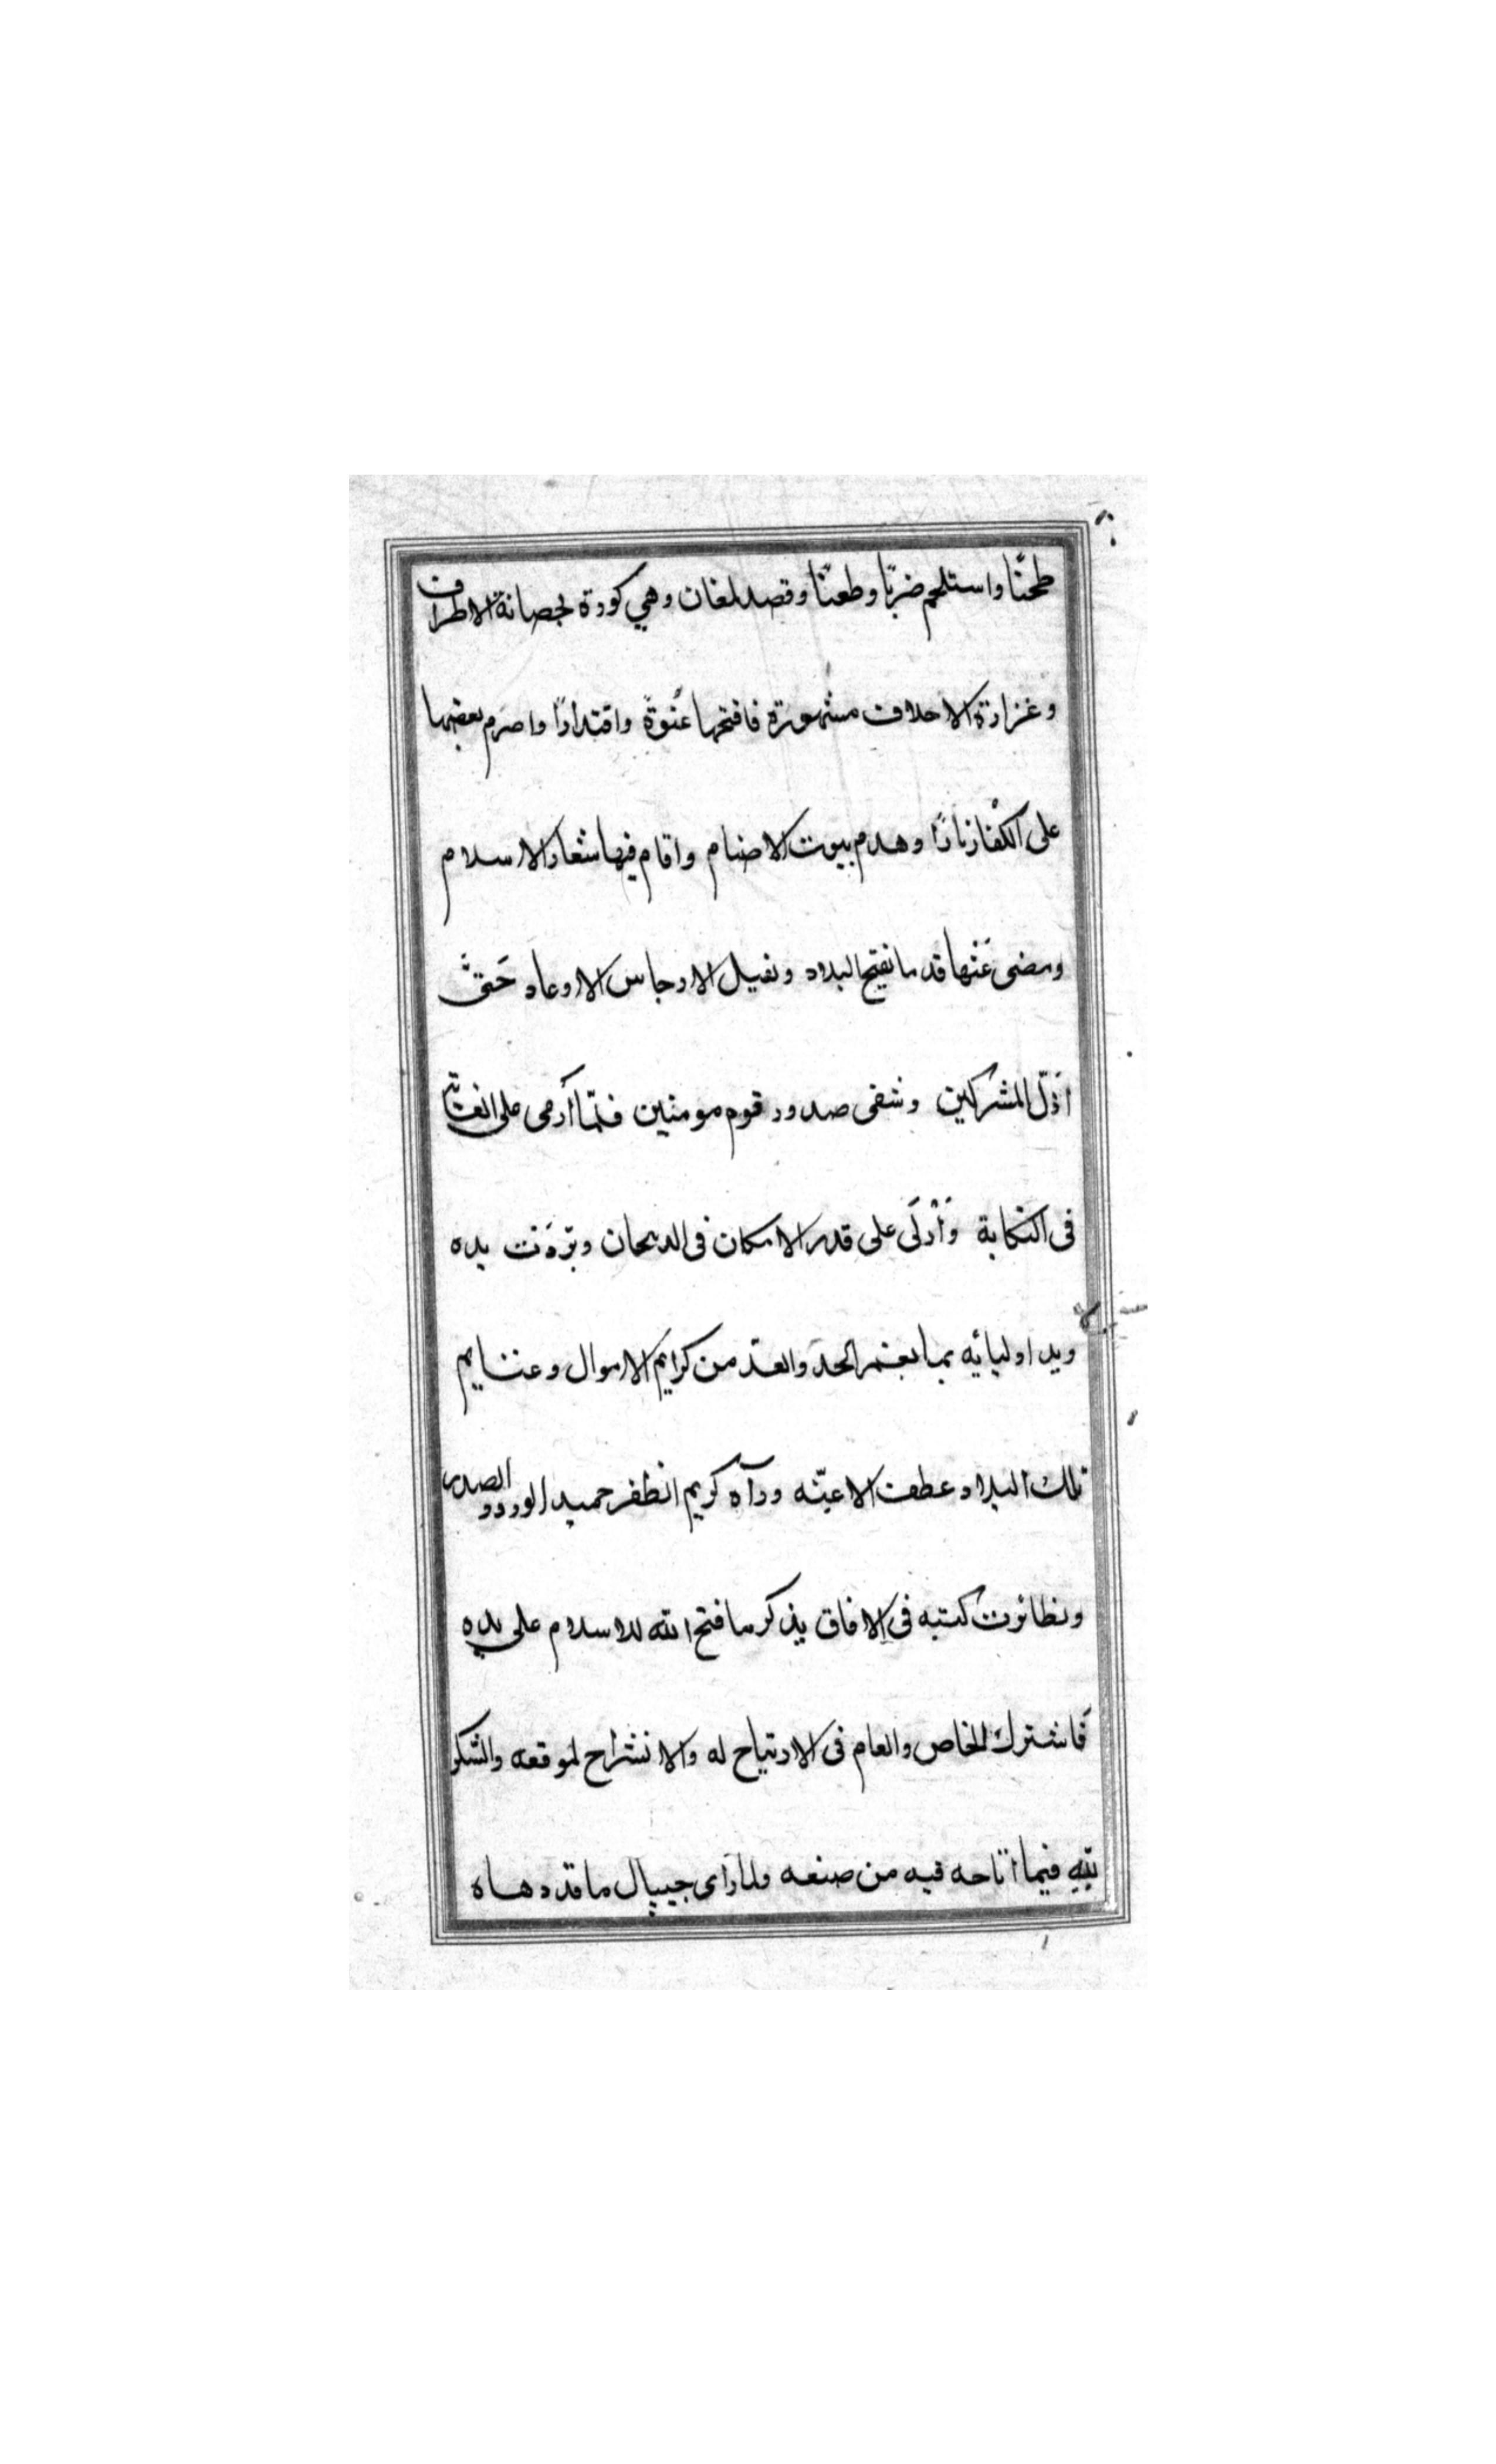 طحنًا واستلحم ضربًا وطعنًا وقصد لمغان وهي كورة بحصانة الاطراف
وغزارة الاحلاف مشهورة فافتتحها عَنْوةً واقتدارًا واضرم بعضها
على الكفار نارًا وهدم بيوت الاصنام واقام فيها شعار الاسلام
ومضى عَنْها قدما يفتح البلاد ويقتل الارجاس الاوغاد حَتىَّ
اذلّ المشركين وشفى صدور قوم مومنين فلمّا أرمى على الغاية
فى النكاية وَأرْبَى على قدر الامكان فى الاثخان وبَرَدَت يده
ويد اوليائه بما يغمر الحدّ والعدّ من كرايم الاموال وغنايم
تلك البلاد عطف الاعنّه ورآه كريم الظفر حميد الورد و الصدر
وتطائرت كتبه فى الافاق بذكر ما فتح الله للاسلام على يده
فَاشترك الخاص والعام فى الارتياح له والانشراح لموقعه والشكر
للّهِ فيما اتاحه فيه من صنعه ولما رَاى جيپال ما قد دهاه